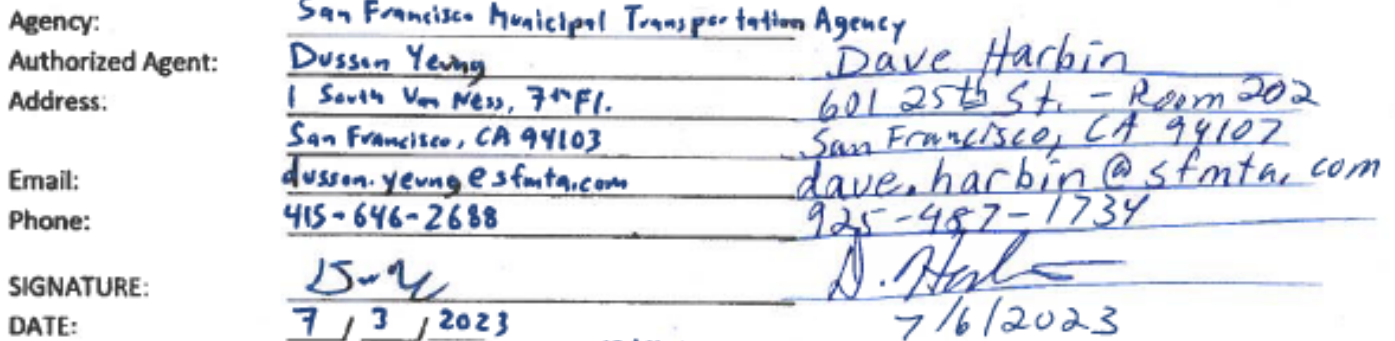 Agency: San Francisco Municipal Transportation Agency
Authorized Agent: Dusson Yeung Dave Harbin
Address: 1 South Van Ness, 7th Fl. 601 25th St. - Room 202
San Francisco, CA 94103 San Francisco, CA 94107
Email: dusson.yeung@sfmta.com dave.harbin@sfmta.com
Phone: 415-646-2688 925-487-1734
SIGNATURE: D. Harbin
DATE: 7 / 3 / 2023 7/6/2023